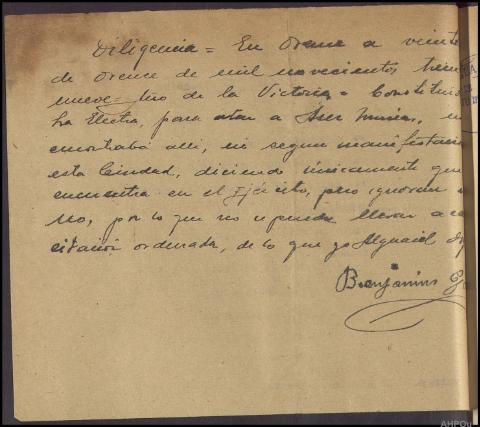 Diligencia = En Orense a veinte
de Orense de mil novecientos trein
nueve = Año de la Victoria = Constituido
La Electra, para citar a
encontraba alli, ni segun manifestaron
esta Ciudad, diciendo únicamente que
encuentra en el Ejército, pero ignoran
no, por lo que no se puede llevar a ca
citación ordenada, de lo que yo Alguacil
Benjamin
AHPOu